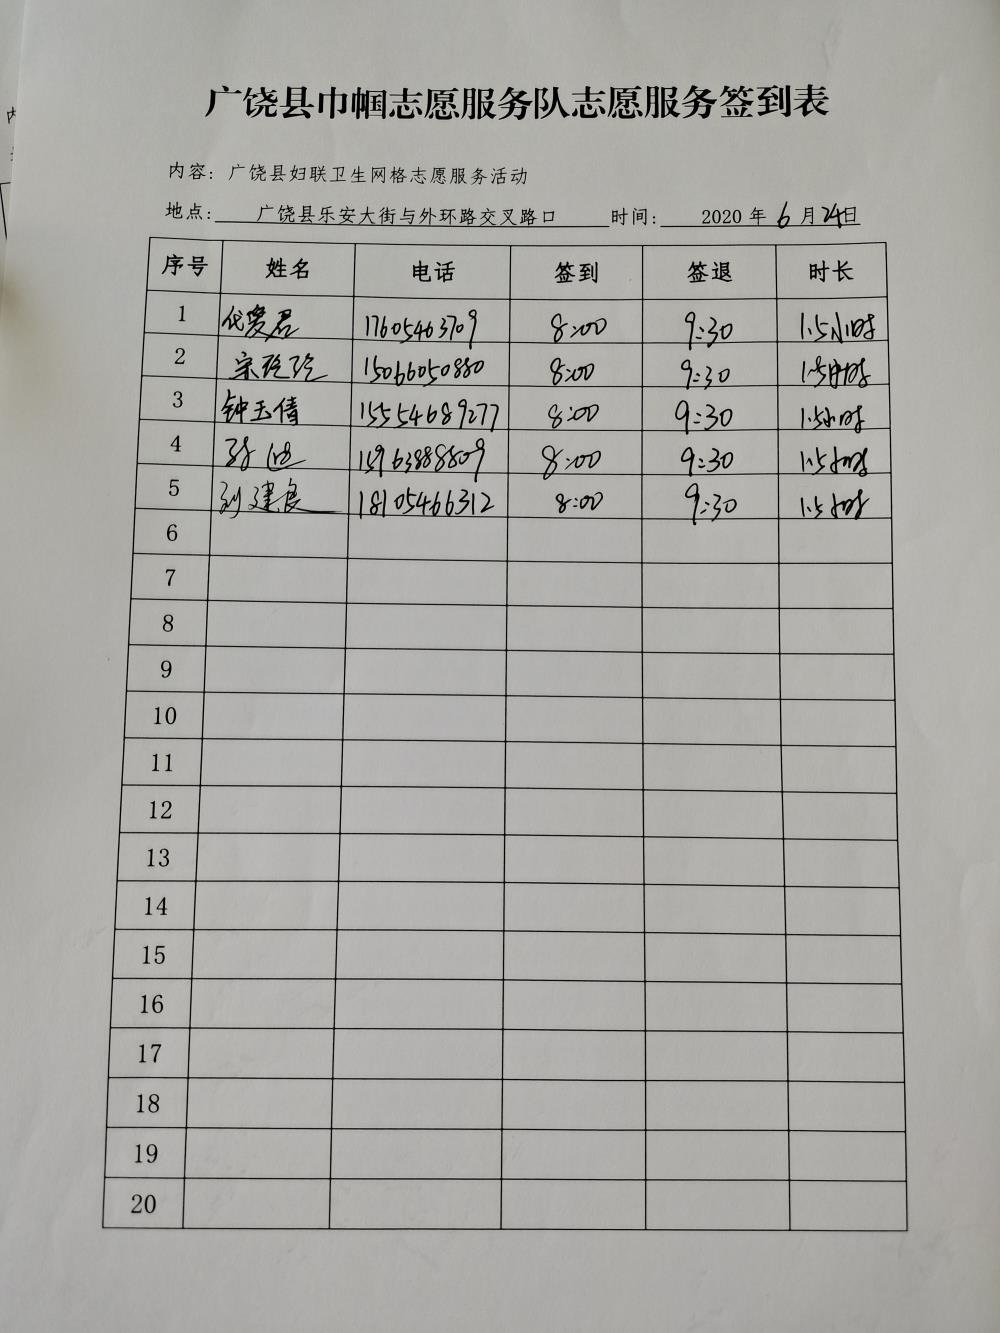 广饶县巾帼志愿服务队志愿服务签到表
内容：广饶县妇联卫生网格志愿服务活动
地点：广饶县乐安大街与外环路交叉路口 时间：2020 年 6 月 24日
序号 姓名 电话 签到 签退 时长
1 代爱君 17605463709 8:00 9:30 1.5小时
2 宋玲玲 15066050880 8:00 9:30 1.5小时
3 钟玉倩 15554689277 8:00 9:30 1.5小时
4 15963888809 8:00 9:30 1.5小时
5 刘建良 18105466312 8:00 9:30 1.5小时
6
7
8
9
10
11
12
13
14
15
16
17
18
19
20